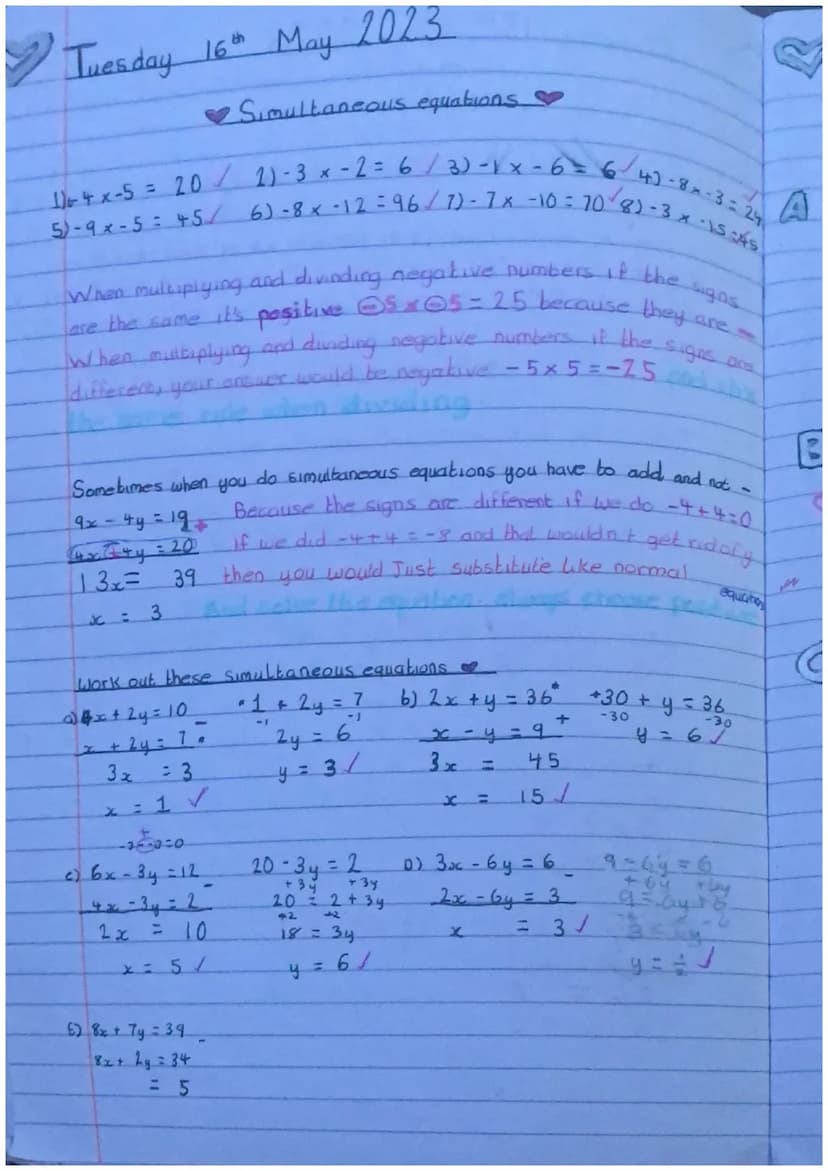 Tuesday 16th May 2023
Simultaneous equations
1) -4 x -5 = 20 2) -3 x -2 = 6 3) -1 x -6 = 6 4) -8 x -3 = 24
5) -9 x -5 = 45 6) -8 x -12 = 96 7) -7 x -10 = 70 8) -3 x -15 = 45
A
When multiplying and dividing negative numbers if the signs
are the same it's positive -5 x -5 = 25 because they are -
When multiplying and dividing negative numbers if the signs are
different, your answer would be negative -5 x 5 = -25 and its
the same rule when dividing
B
Sometimes when you do simultaneous equations you have to add and not -
9x - 4y = 19 + Because the signs are different if we do -4+4=0
4x + 4y = 20 if we did -4+4 = -8 and that wouldn't get rid of y
13x = 39 then you would Just substitute like normal
x = 3 And solve the equation. always choose positive equation
C
Work out these simultaneous equations
a) 4x + 2y = 10 1 + 2y = 7 b) 2x + y = 36 30 + y = 36
x + 2y = 7 - -1 -1 x - y = 9 + -30 -30
2y = 6 y = 6
3x = 3 y = 3 3x = 45
x = 1 x = 15
c) 6x - 3y = 12 - 20 - 3y = 2 D) 3x - 6y = 6 - 9 - 6y = 6
+3y +3y +6y +6y
4x - 3y = 2 20 = 2 + 3y 2x - 6y = 3 9 = 6y + 6
2x = 10 18 = 3y x = 3
x = 5 y = 6 y = 1/2
E) 8x + 7y = 39 -
8x + 2y = 34
= 5